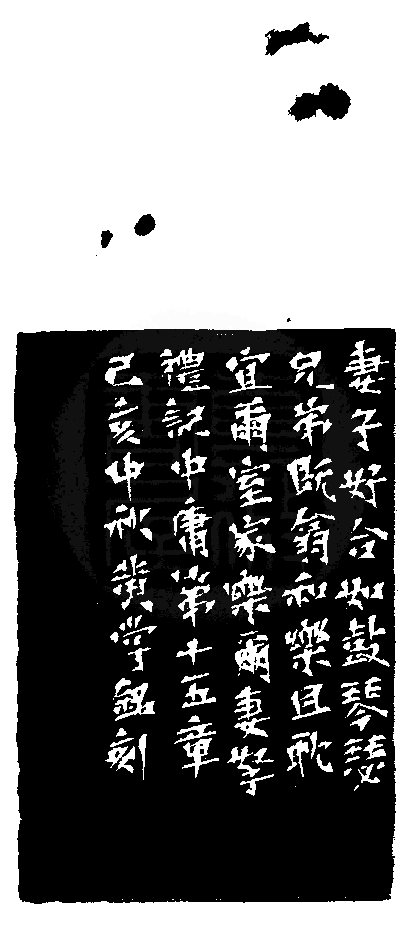 妻子好合如鼓琴瑟
兄弟既翕和樂且耽
宜爾室家樂爾妻孥
禮記中庸第十五章
己亥仲秋黄学銘刻